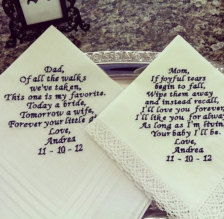 Dad,
Of all the walks
we've taken,
This one is my favorite.
Today a bride,
Tomorrow a wife,
Forever your little
Love,
Andrea
11 - 10 - 12
Mom,
If joyful tears
begin to fall,
Wipe them away
and instead recall,
I'll love you forever,
I'll like you for always
As long as I'm livin
Your baby I'll be.
Love,
Andrea
11 - 10 - 12